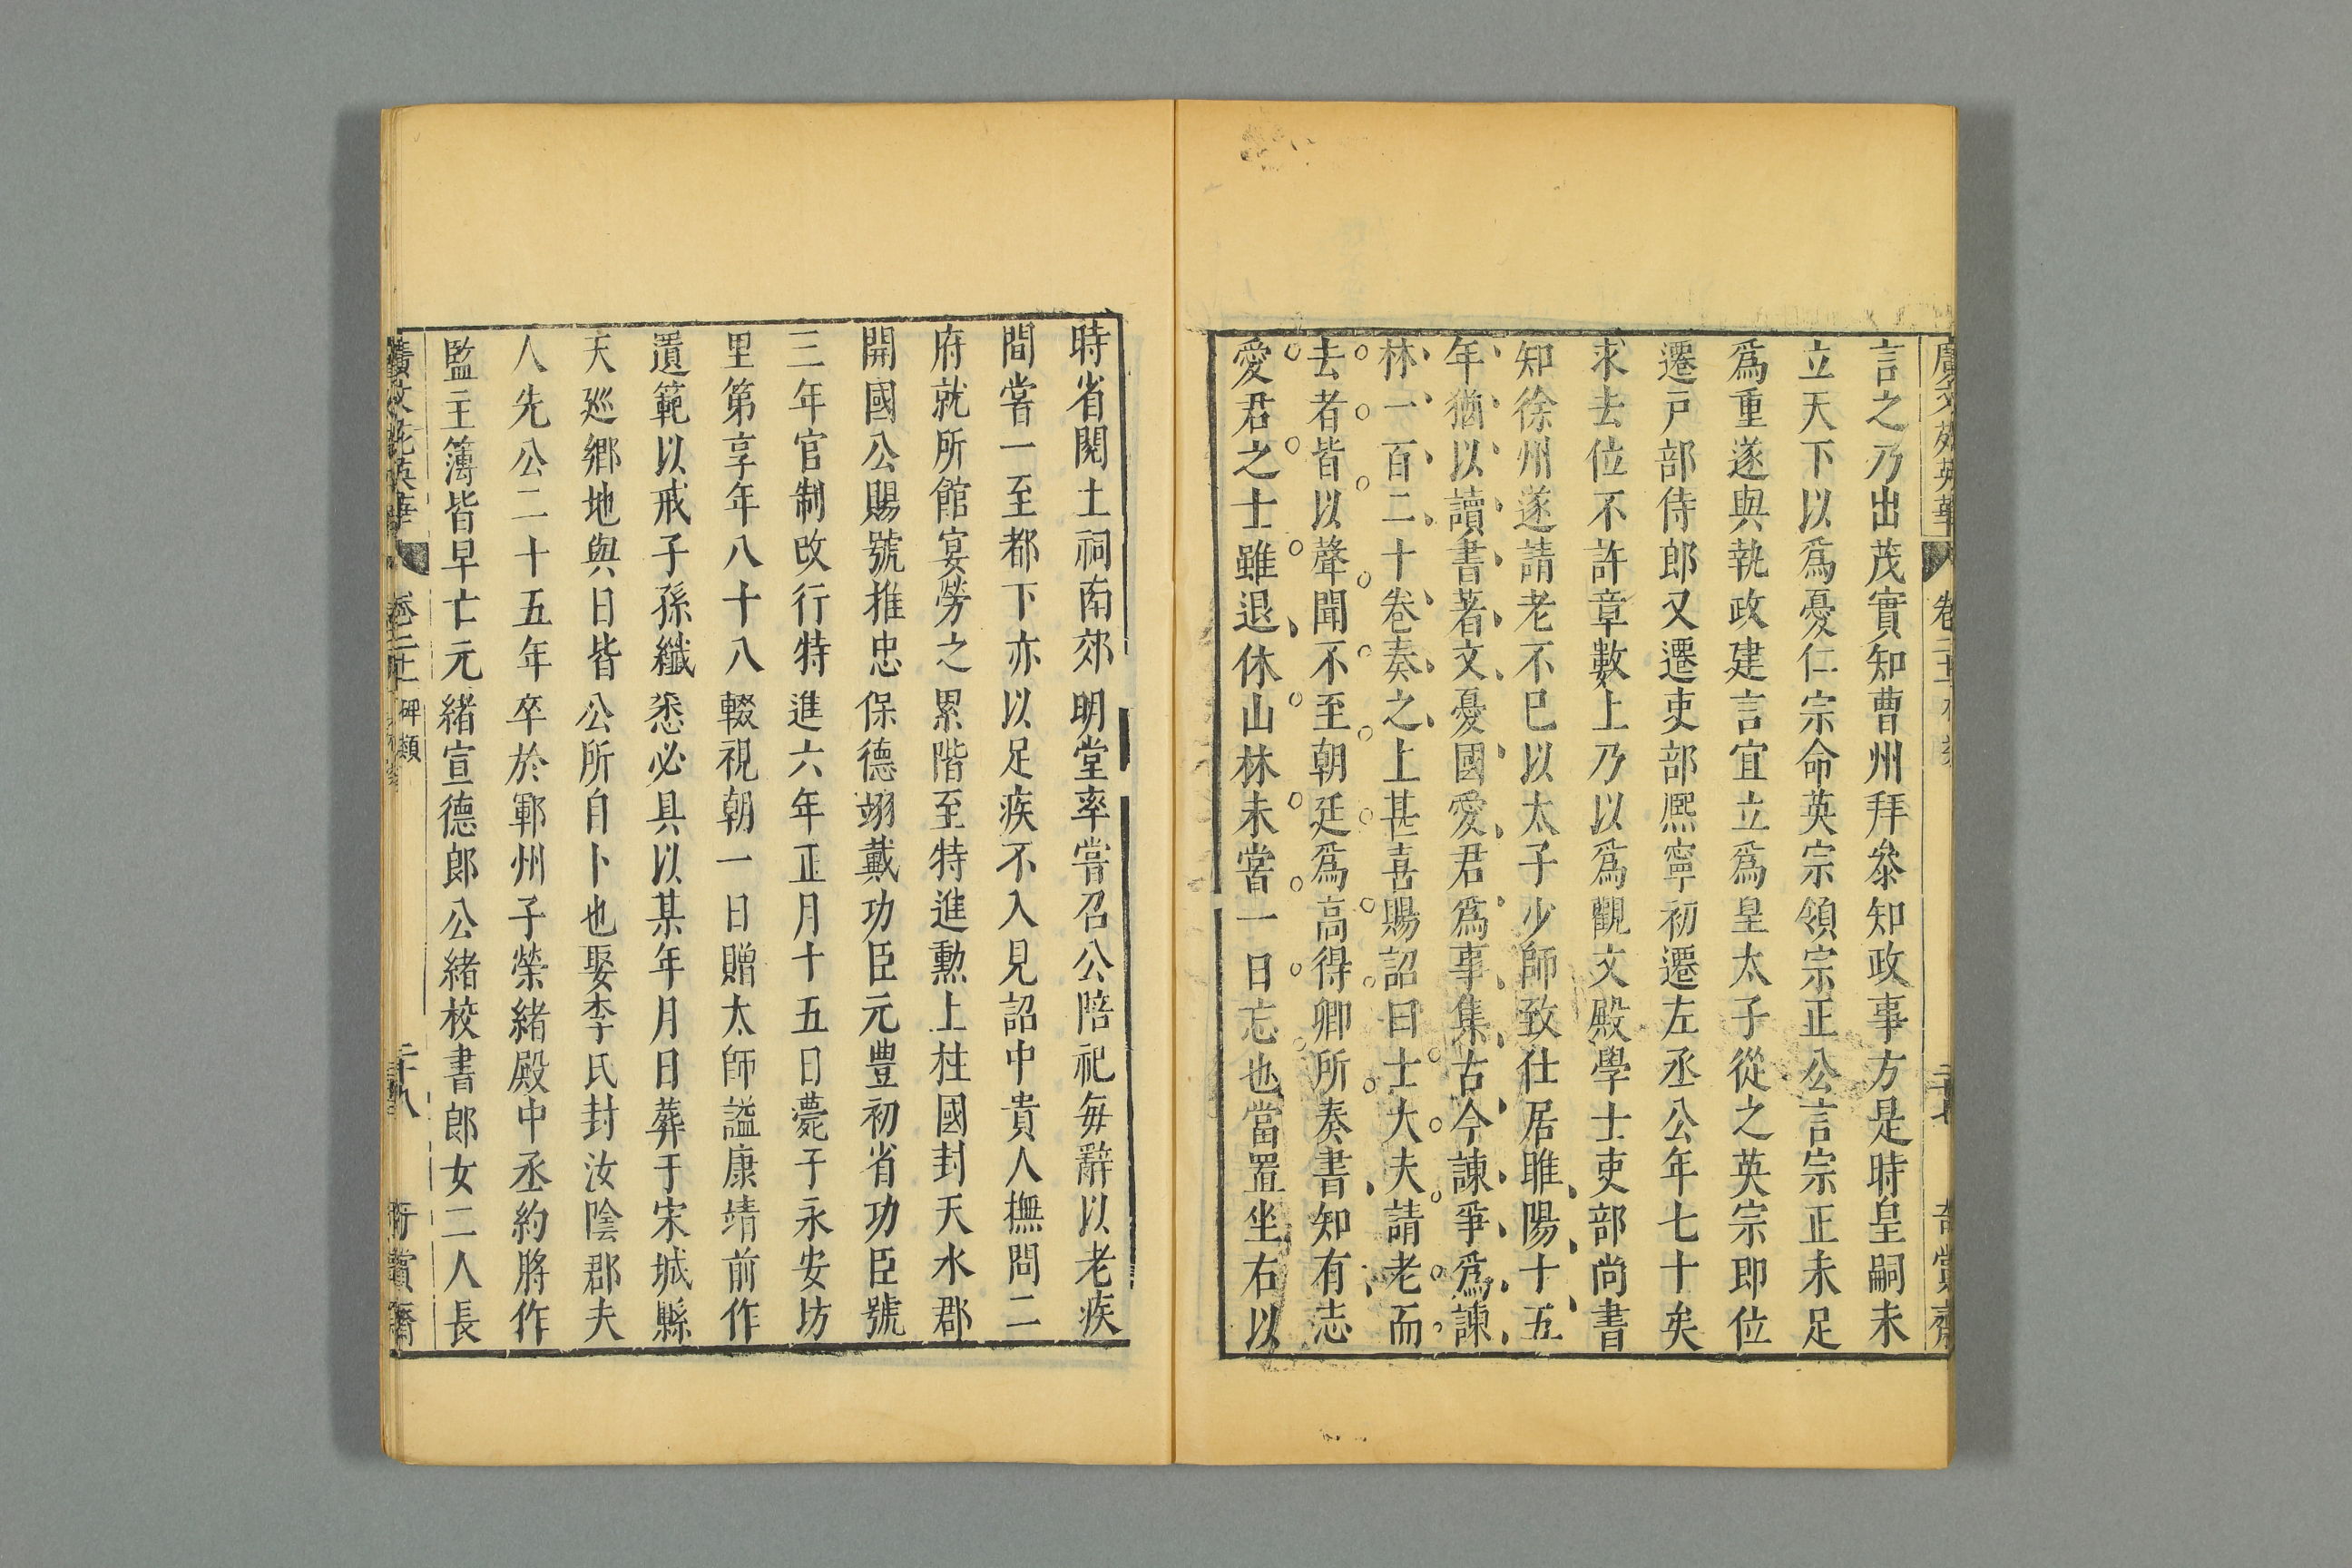 言之乃出茂實知曹州拜叅知政事方是時皇嗣未
立天下以爲憂仁宗命英宗領宗正公言宗正未足
爲重遂與執政建言宜立爲皇太子從之英宗即位
遷戸部侍郎又遷吏部熈寧初遷左丞公年七十矣
求去位不許章數上乃以爲觀文殿學士吏部尚書
知徐州遂請老不巳以太子少師致仕居睢陽十五
年猶以讀書著文憂國愛君爲事集古今諫爭爲諫
林一百二十卷奏之上甚喜賜詔曰士大夫請老而
去者皆以聲聞不至朝廷爲高得卿所奏書知有志
愛君之士雖退休山林未嘗一日忘也當置坐右以
時省閱土祠南郊明堂率嘗召公陪祀每辭以老疾
間嘗一至都下亦以足疾不入見詔中貴人撫問二
府就所館宴勞之累階至特進勲上柱國封天水郡
開國公賜號推忠保德翊戴功臣元豊初省功臣號
三年官制改行特進六年正月十五日薨于永安坊
里第享年八十八輟視朝一日贈太師謚康靖前作
遺範以戒子孫纖悉必具以某年月日葬于宋城縣
天廵鄉地與日皆公所自卜也娶李氏封汝陰郡夫
人先公二十五年卒於鄆州子榮緒殿中丞約將作
監主簿皆早亡元緒宣德郎公緒校書郎女二人長
廣文苑英華 卷二十 碑類 二十八 奇賞齋